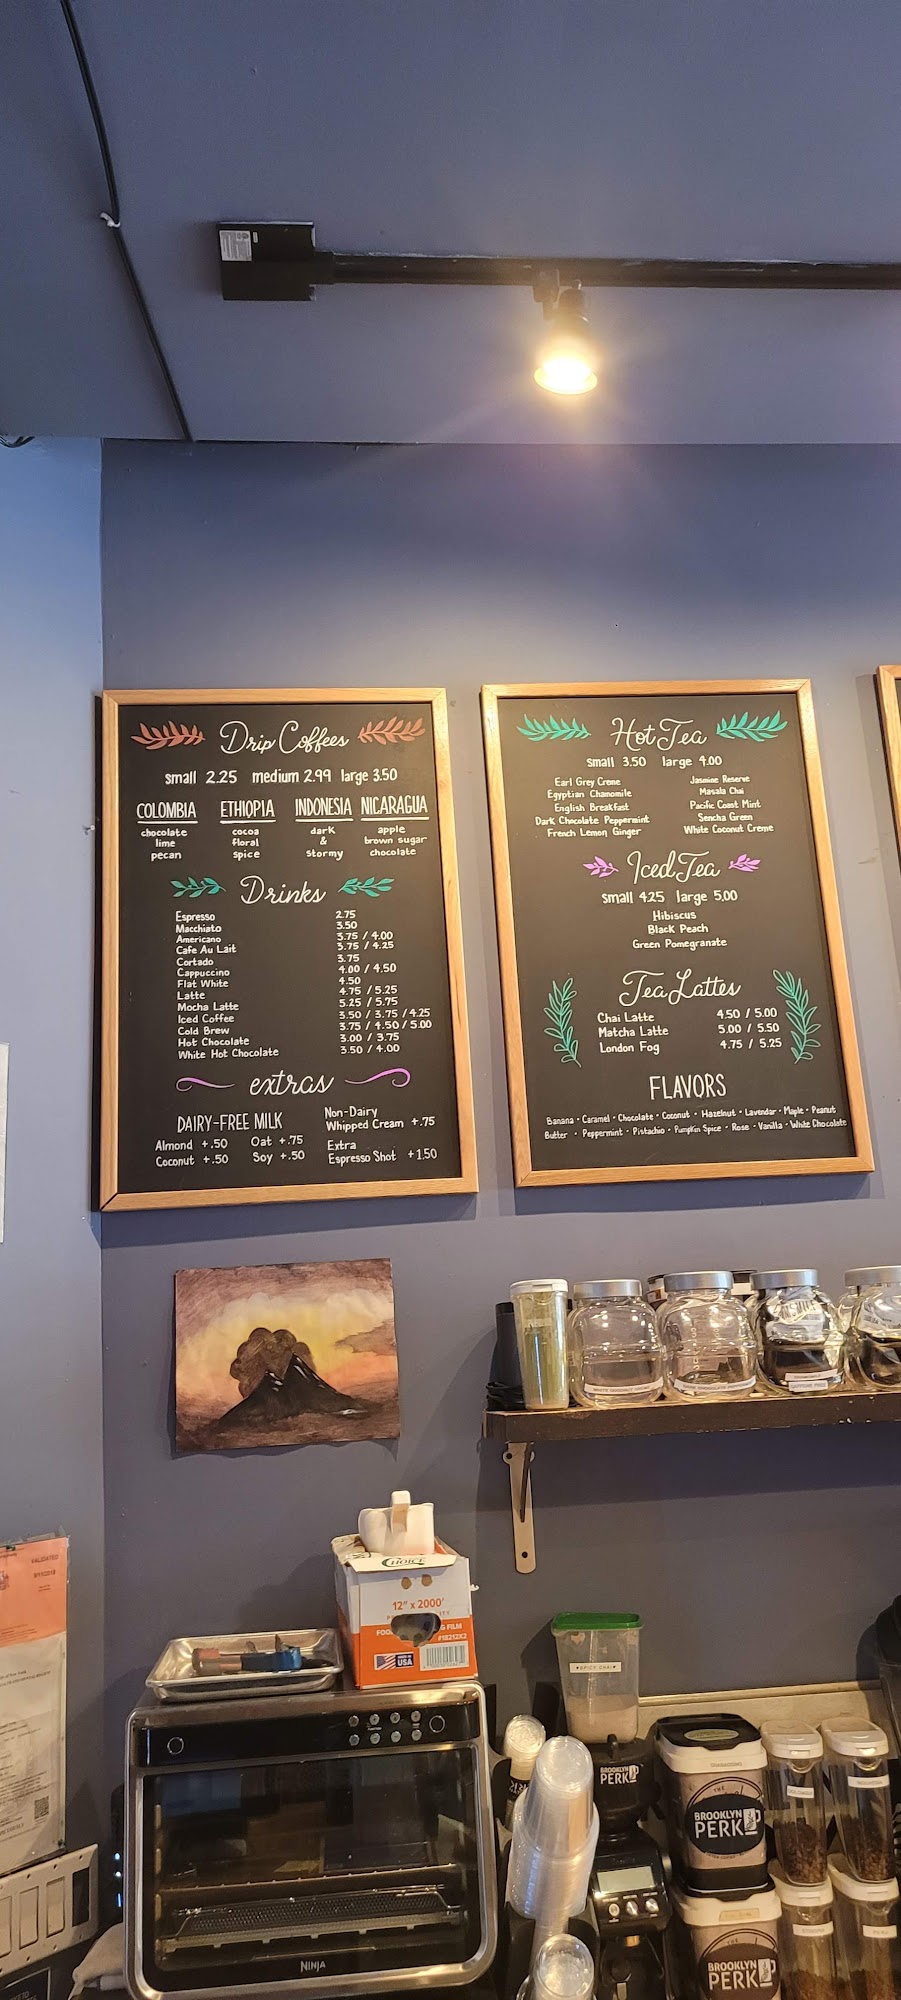 Drip Coffees
small 2.25 medium 2.99 large 3.50
COLOMBIA
chocolate
lime
pecan
ETHIOPIA
cocoa
floral
spice
INDONESIA
dark
&
stormy
NICARAGUA
apple
brown sugar
chocolate
Drinks
Espresso 2.75
Macchiato 3.50
Americano 3.75 / 4.00
Cafe Au Lait 3.75 / 4.25
Cortado 3.75
Cappuccino 4.00 / 4.50
Flat White 4.50
Latte 4.75 / 5.25
Mocha Latte 5.25 / 5.75
Iced Coffee 3.50 / 3.75 / 4.25
Cold Brew 3.75 / 4.50 / 5.00
Hot Chocolate 3.00 / 3.75
White Hot Chocolate 3.50 / 4.00
extras
DAIRY-FREE MILK
Almond +.50 Oat +.75
Coconut +.50 Soy +.50
Non-Dairy
Whipped Cream +.75
Extra
Espresso Shot +1.50
Hot Tea
small 3.50 large 4.00
Earl Grey Creme
Egyptian Chamomile
English Breakfast
Dark Chocolate Peppermint
French Lemon Ginger
Jasmine Reserve
Masala Chai
Pacific Coast Mint
Sencha Green
White Coconut Creme
Iced Tea
small 4.25 large 5.00
Hibiscus
Black Peach
Green Pomegranate
Tea Lattes
Chai Latte 4.50 / 5.00
Matcha Latte 5.00 / 5.50
London Fog 4.75 / 5.25
FLAVORS
Banana · Caramel · Chocolate · Coconut · Hazelnut · Lavendar · Maple · Peanut
Butter · Peppermint · Pistachio · Pumpkin Spice · Rose · Vanilla · White Chocolate
VALIDATED
CHOICE
12" x 2000'
FILM
#18212X2
USA
SPICY CHAI
BROOKLYN
PERK
BROOKLYN
PERK
BROOKLYN
PERK
NINJA